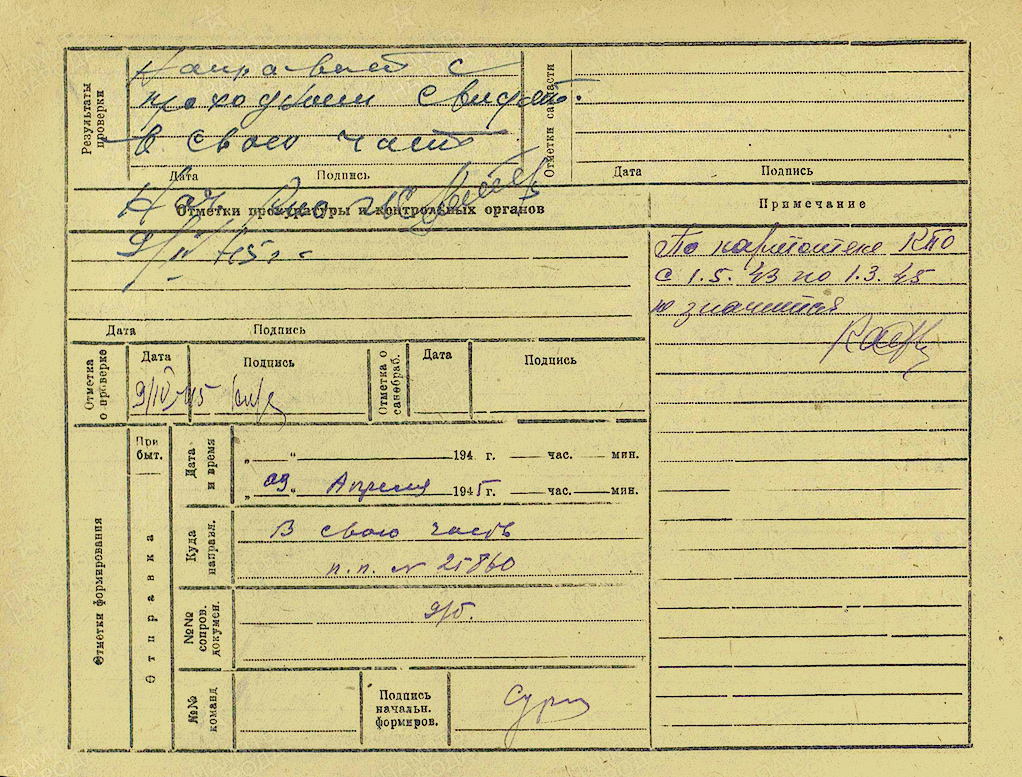 Результаты проверки
Направить с
проходным свидет.
в свою часть
Дата Подпись
Отметки санчасти
Дата Подпись
Нач.
Отметки прокуратуры и контрольных органов
9/IV 45 г.
Дата Подпись
Примечание
По картотеке КПО
с 1.5.43 по 1.3.45
не значится
Отметка о проверке
Дата Подпись
9/IV-45
Отметка о санобраб.
Дата Подпись
Отметки формирования
Прибыт.
Отправка
Дата и время
„ “ 194 г. час. мин.
„ 09 “ Апреля 1945 г. час. мин.
Куда направл.
В свою часть
п.п. № 25860
№№ сопров. докумен.
9/б.
№№ команд
Подпись начальн. формиров.